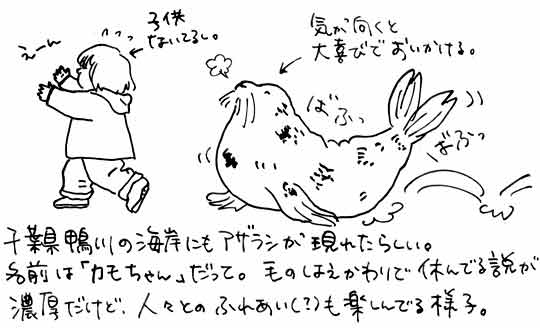 えーん
子供
ないてるし。
気が向くと
大喜びでおいかける。
ばふっ
ばふっ
千葉県鴨川の海岸にもアザラシが現れたらしい。
名前は「カモちゃん」だって。毛のはえかわりで休んでる説が
濃厚だけど、人々とのふれあい(?)も楽しんでる様子。